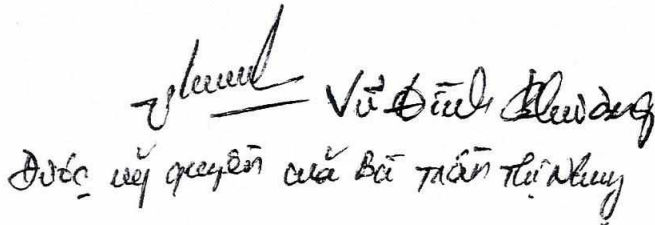 Vũ Đình Chương
Được uỷ quyền của Bà Trần Thị Nhung